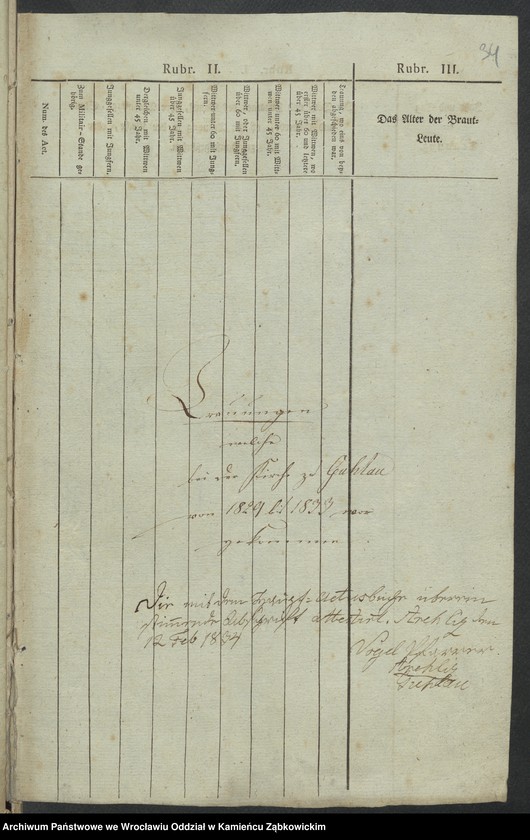 34
Rubr. II.
Rubr. III.
Num. des Act.
Zum Militair-Stande ge-
hörig.
Junggesellen mit Jungfern.
Dergleichen mit Wittwen
unter 45 Jahr.
Junggesellen mit Wittwen
über 45 Jahr.
Wittwer unter 60 mit Jung-
fern.
Wittwer, oder Junggesellen
über 60 mit Jungfern.
Wittwer unter 60 mit Witt-
wen unter 45 Jahr.
Wittwer mit Wittwen, wo
erstre über 60 und letztere
über 45 Jahr.
Trauung, wo eins von bey-
den abgeschieden war.
Das Alter der Braut-
Leute.
Trauungen
welche
bei der Kirche zu Guhlau
von 1829 bis 1833 vor
gekommen
Die mit dem Haupt-Actusbuche überein
stimmende Abschrift attestirt.
den
12 Feb 1834
Vogel Pfarrer.
Guhlau